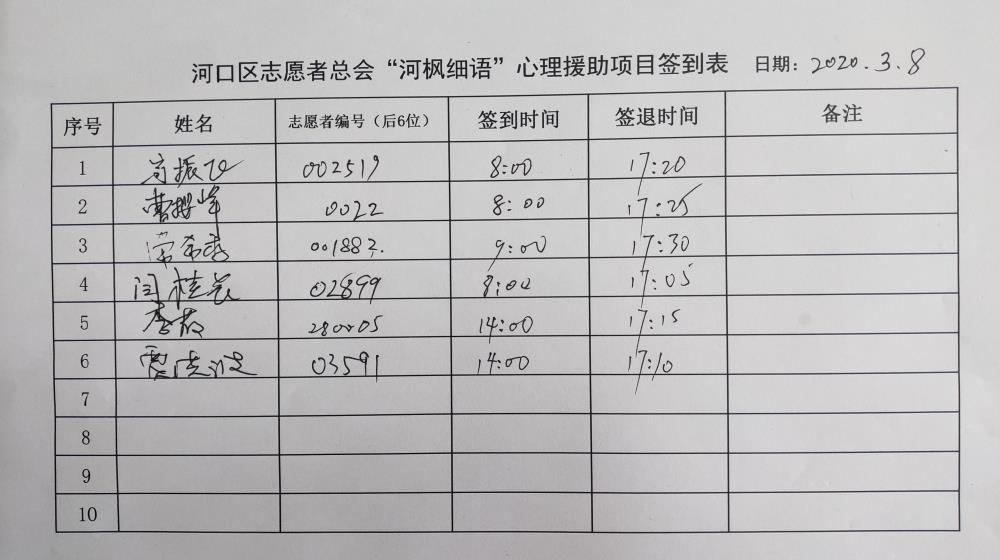 河口区志愿者总会“河枫细语”心理援助项目签到表 日期: 2020.3.8
序号 姓名 志愿者编号（后6位） 签到时间 签退时间 备注
1 002519 8:00 17:20
2 0022 8:00 17:25
3 001882. 9:00 17:30
4 闫桂长 02899 8:00 17:05
5 280005 14:00 17:15
6 03591 14:00 17:10
7
8
9
10